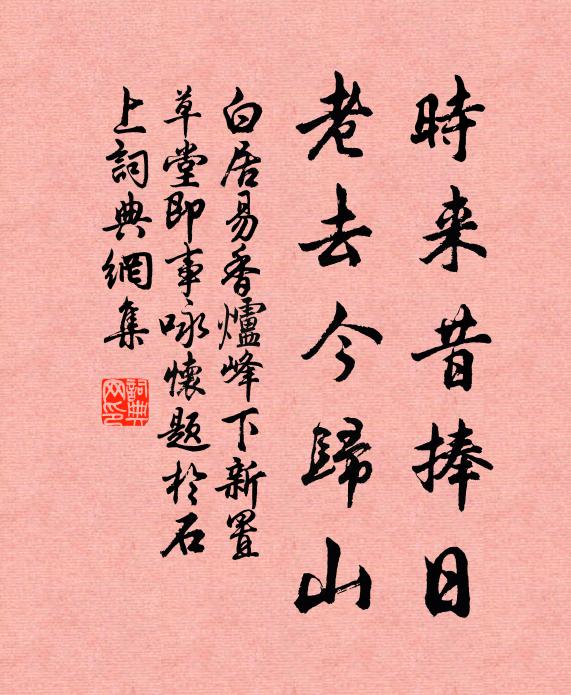 時来昔捧日
老去今歸山
白居易香爐峰下新置
草堂即事咏懷題於石
上詞典網集
詞典网印